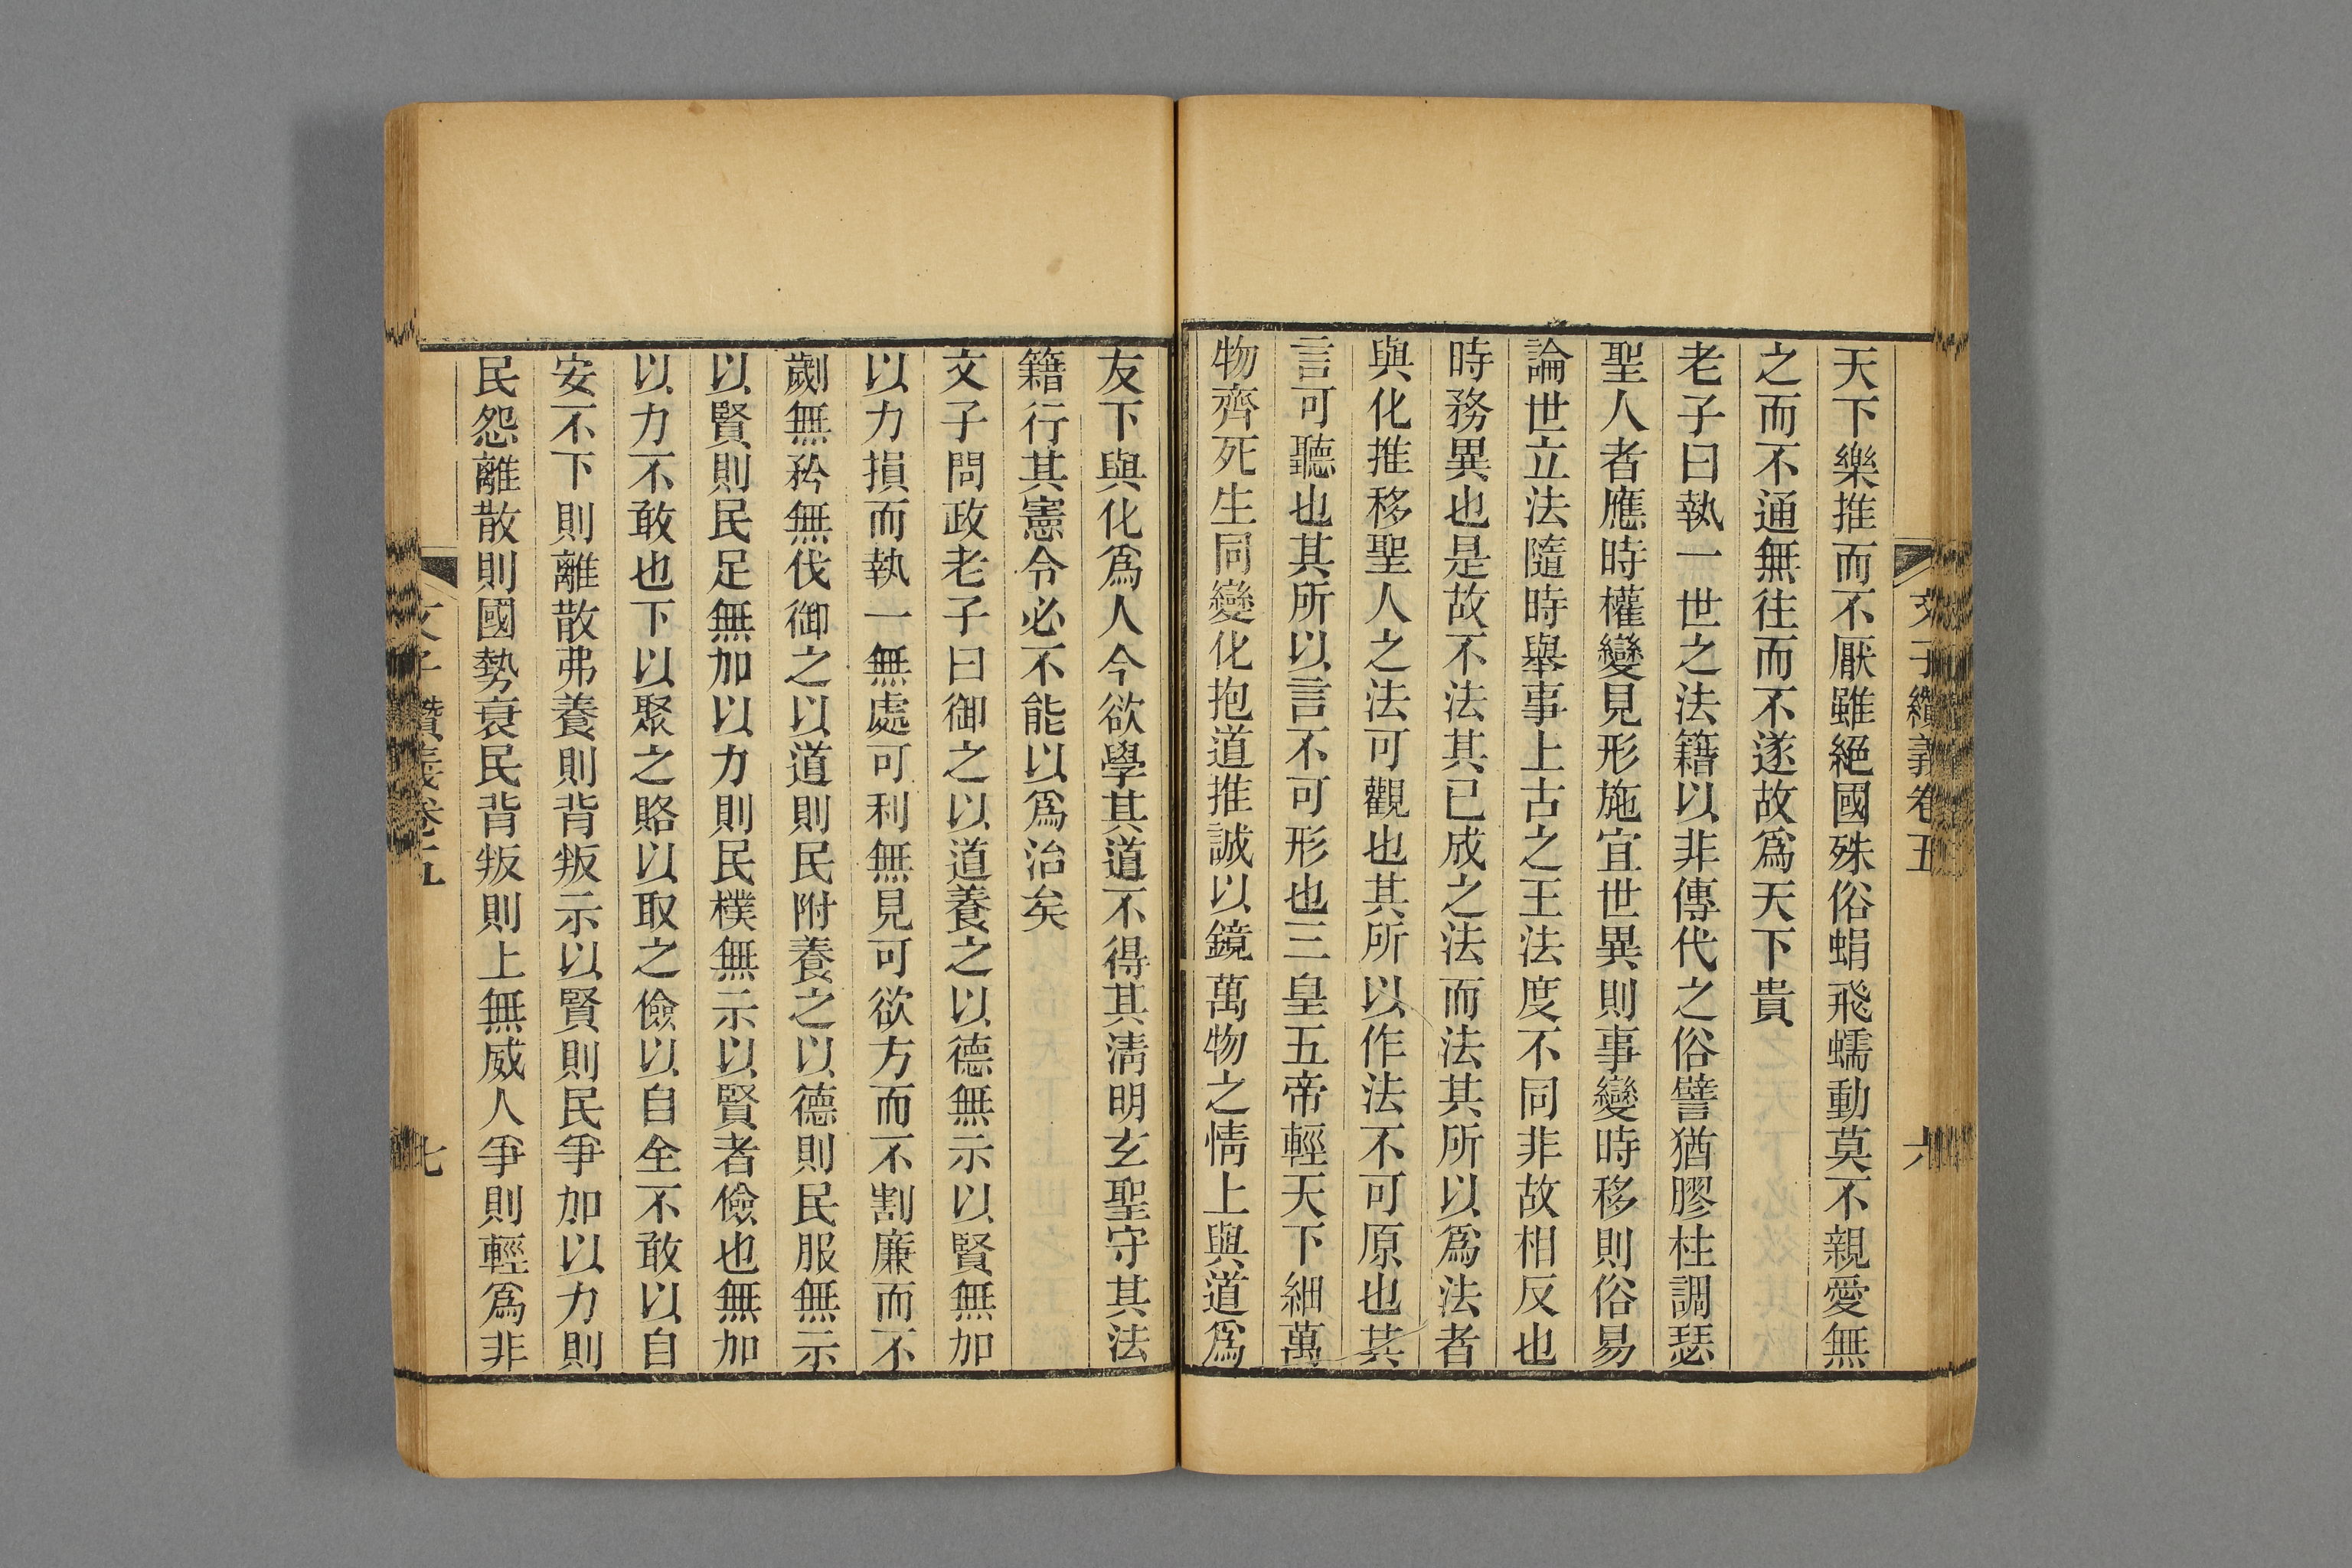 文子纘義卷五
六
天下樂推而不厭雖絕國殊俗蜎飛蠕動莫不親愛無
之而不通無往而不遂故爲天下貴
老子曰執一世之法籍以非傳代之俗譬猶膠柱調瑟
聖人者應時權變見形施宜世異則事變時移則俗易
論世立法隨時舉事上古之王法度不同非故相反也
時務異也是故不法其已成之法而法其所以爲法者
與化推移聖人之法可觀也其所以作法不可原也其
言可聽也其所以言不可形也三皇五帝輕天下細萬
物齊死生同變化抱道推誠以鏡萬物之情上與道爲
友下與化爲人今欲學其道不得其淸明玄聖守其法
籍行其憲令必不能以爲治矣
文子問政老子曰御之以道養之以德無示以賢無加
以力損而執一無處可利無見可欲方而不割廉而不
劌無矜無伐御之以道則民附養之以德則民服無示
以賢則民足無加以力則民樸無示以賢者儉也無加
以力不敢也下以聚之賂以取之儉以自全不敢以自
安不下則離散弗養則背叛示以賢則民爭加以力則
民怨離散則國勢衰民背叛則上無威人爭則輕爲非
文子纘義卷五
七